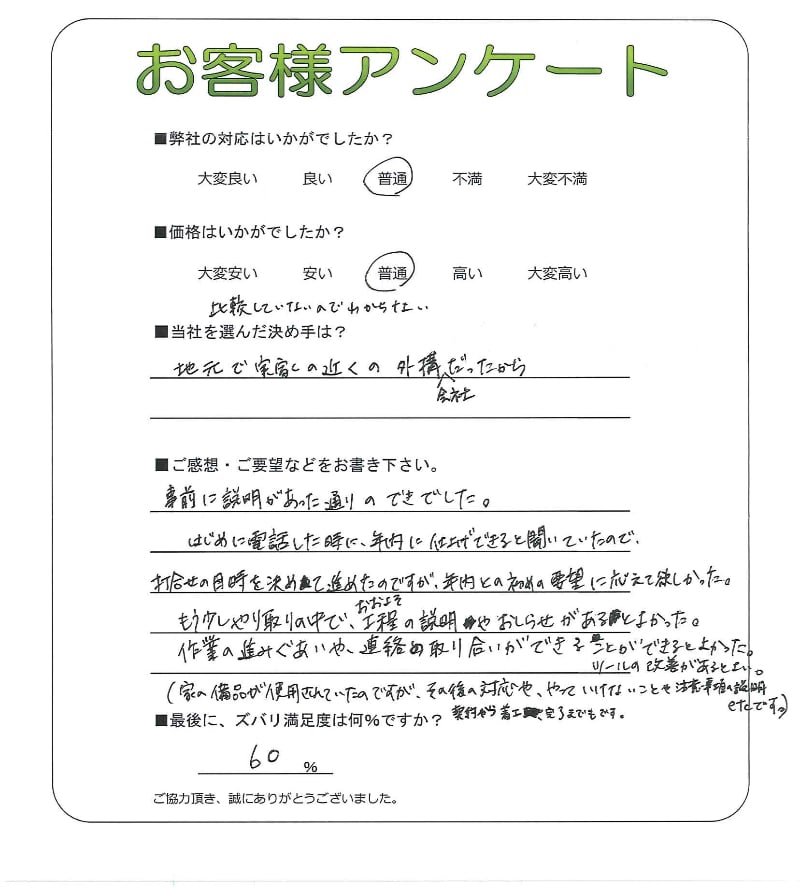 お客様アンケート
■弊社の対応はいかがでしたか？
大変良い 良い 普通 不満 大変不満
■価格はいかがでしたか？
大変安い 安い 普通 高い 大変高い
比較していないのでわからない
■当社を選んだ決め手は？
地元で家の近くの外構会社だったから
■ご感想・ご要望などをお書き下さい。
事前に説明があった通りのできでした。
はじめに電話した時に、年内に仕上げできると聞いていたので、
打合せの日時を決めて進めたのですが、年内との初めの要望に応えて欲しかった。
もう少しやり取りの中で、おおよそ工程の説明やおしらせがあるとよかった。
作業の進みぐあいや、連絡の取り合いができることができるとよかった。
ツールの改善があるとよい。
(家の備品が使用されていたのですが、その後の対応や、やっていけないことや注意事項の説明
etcです。)
契約から着工、完了までもです。
■最後に、ズバリ満足度は何%ですか？
60 %
ご協力頂き、誠にありがとうございました。